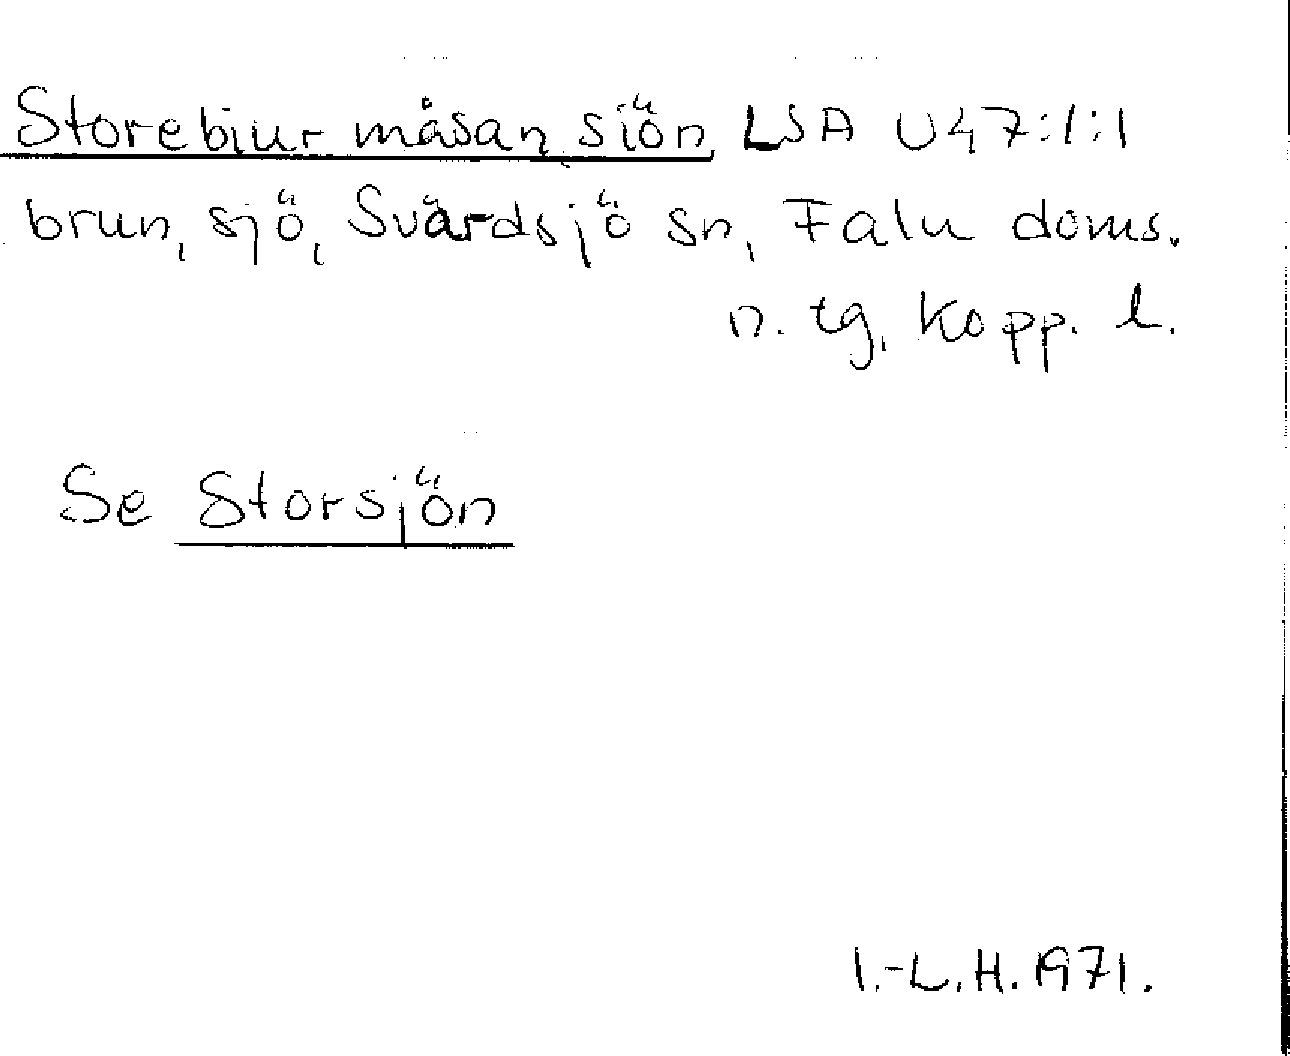 Storebiur måsan siön LSA U47:1:1
brun, sjö, Svärdsjö sn, Falu doms.
n. tg, Kopp. l.
Se Storsjön
I.-L.H. 1971.